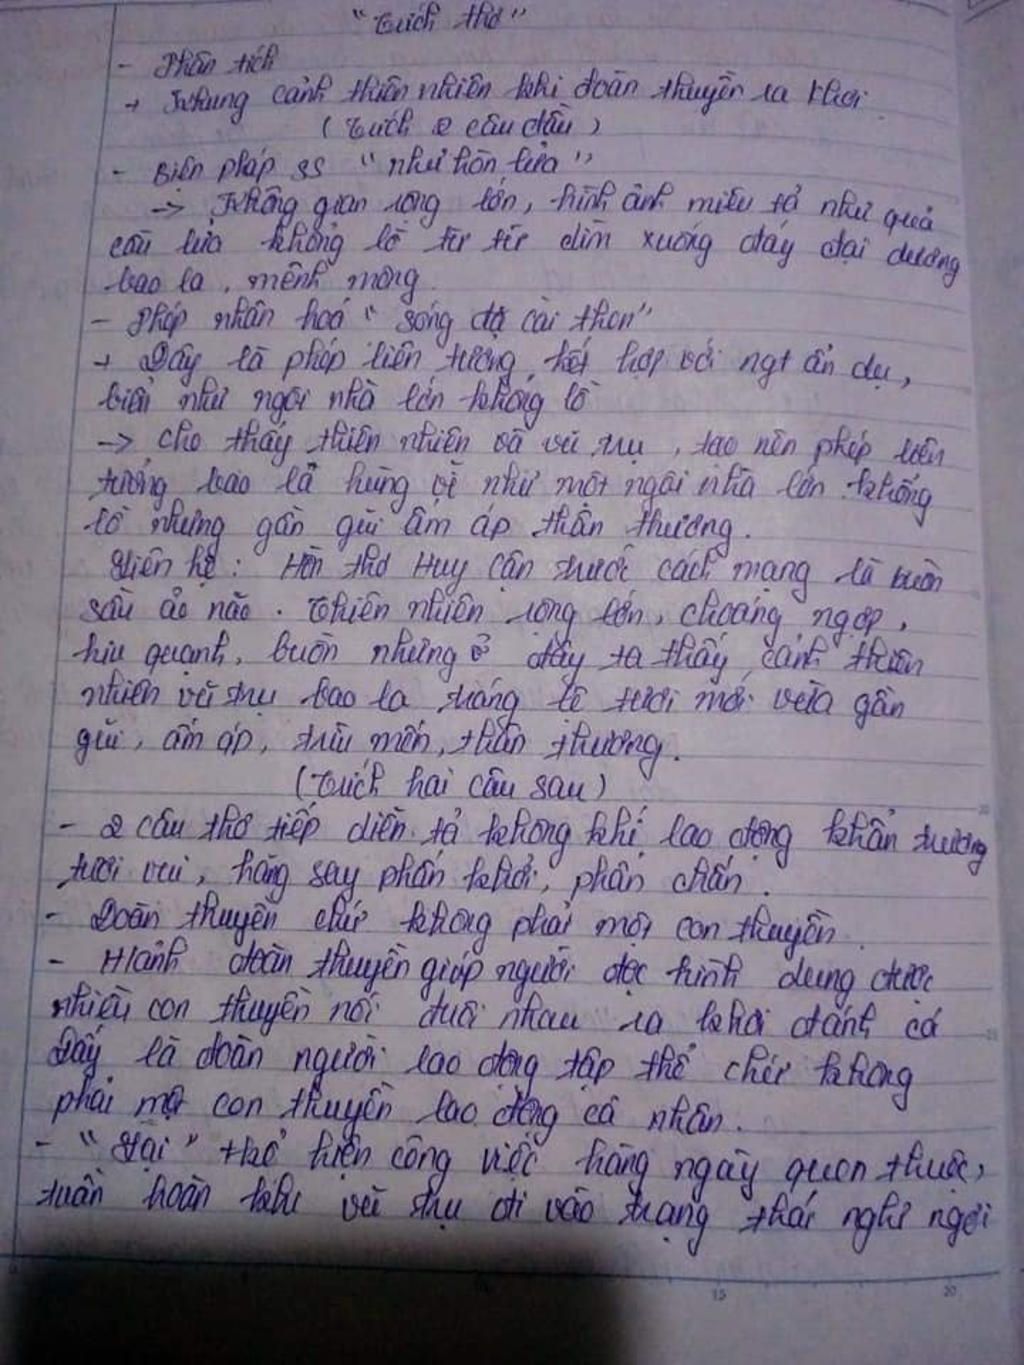 "Trích thơ"
- Phân tích
+ Khung cảnh thiên nhiên khi đoàn thuyền ra khơi.
(Trích 2 câu đầu)
- Biện pháp ss "như hòn lửa"
-> Không gian rộng lớn, hình ảnh miêu tả như quả
cầu lửa khổng lồ từ từ dìm xuống đáy đại dương
bao la, mênh mông.
- Phép nhân hoá "sóng đã cài then"
+ Đây là phép liên tưởng kết hợp với ngt ẩn dụ,
biển như ngôi nhà lớn khổng lồ
-> cho thấy thiên nhiên và vũ trụ, tạo nên phép liên
tưởng bao la hùng vĩ như một ngôi nhà lớn khổng
lồ nhưng gần gũi ấm áp thân thương.
Liên hệ: Hồn thơ Huy Cận trước cách mạng là buồn
sầu ảo não. Thiên nhiên rộng lớn, choáng ngợp,
hiu quạnh, buồn nhưng ở đây ta thấy cảnh thiên
nhiên vũ trụ bao la tráng lệ tươi mới vừa gần
gũi, ấm áp, trìu mến, thân thương.
(Trích hai câu sau)
- 2 câu thơ tiếp diễn tả không khí lao động khẩn trương
tươi vui, hăng say phấn khởi, phấn chấn.
- Đoàn thuyền chứ không phải một con thuyền.
- H/ảnh đoàn thuyền giúp người đọc hình dung được
nhiều con thuyền nối đuôi nhau ra khơi đánh cá
Đấy là đoàn người lao động tập thể chứ không
phải một con thuyền lao động cá nhân.
- "Lại" thể hiện công việc hằng ngày quen thuộc,
tuần hoàn khi vũ trụ đi vào trạng thái nghỉ ngơi
15
20